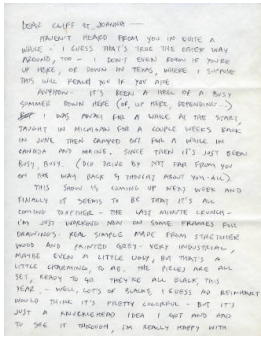 DEAR CLIFF ET JOANNA —
HAVEN'T HEARD FROM YOU IN QUITE A
WHILE - I GUESS THAT'S TRUE THE OTHER WAY
AROUND, TOO - I DON'T EVEN KNOW IF YOU'RE
UP HERE, OR DOWN IN TEXAS, WHERE I SUPPOSE
THIS WILL REACH YOU IF YOU ARE
ANYHOW - IT'S BEEN A HELL OF A BUSY
SUMMER DOWN HERE (OR, UP HERE, DEPENDING -)
I WAS AWAY FOR A WHILE AT THE START,
TAUGHT IN MICHIGAN FOR A COUPLE WEEKS BACK
IN JUNE THEN CAMPED OUT FOR A WHILE IN
CANADA AND MAINE. SINCE THEN IT'S JUST BEEN
BUSY, BUSY. (DID DRIVE BY NOT FAR FROM YOU
ON THE WAY BACK & THOUGHT ABOUT YOU-ALL)
THIS SHOW IS COMING UP NEXT WEEK AND
FINALLY IT SEEMS TO BE THAT IT'S ALL
COMING TOGETHER - THE LAST MINUTE CRUNCH -
I'M JUST WORKING NOW ON SOME FRAMES FOR
DRAWINGS. REAL SIMPLE MADE FROM STRETCHER
WOOD AND PAINTED GREY - VERY INDUSTRIAL,
MAYBE EVEN A LITTLE UGLY, BUT THAT'S A
LITTLE CHARMING, TO ME. THE PIECES ARE ALL
SET, READY TO GO. THEY'RE ALL BLACK, THIS
YEAR - WELL, LOTS OF BLACKS, I GUESS AD REINHARDT
WOULD THINK IT'S PRETTY COLORFUL - BUT IT'S
JUST A KNUCKLEHEAD IDEA I GOT AND HAD
TO SEE IT THROUGH, I'M REALLY HAPPY WITH